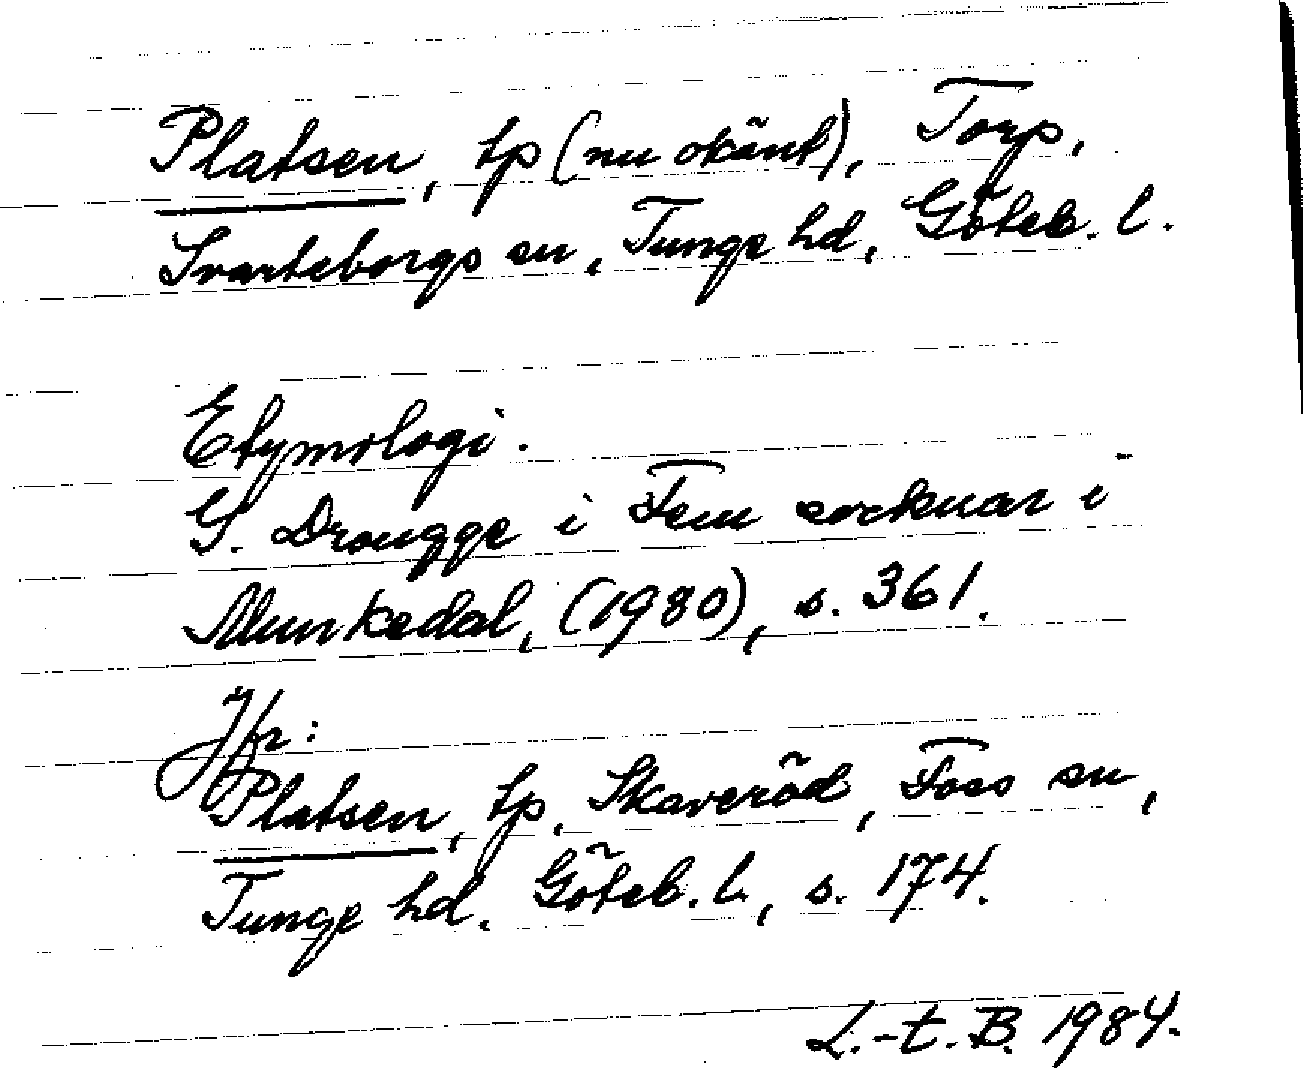 Platsen, tp (nu okänt), Torp,
Svarteborgs sn, Tunge hd, Göteb. l.
Etymologi.
G. Drougge i Fem socknar i
Munkedal, (1980), s. 361.
Jfr:
Platsen, tp, Skaveröd, Foss sn,
Tunge hd. Göteb. l., s. 174.
L.-t. B. 1984.